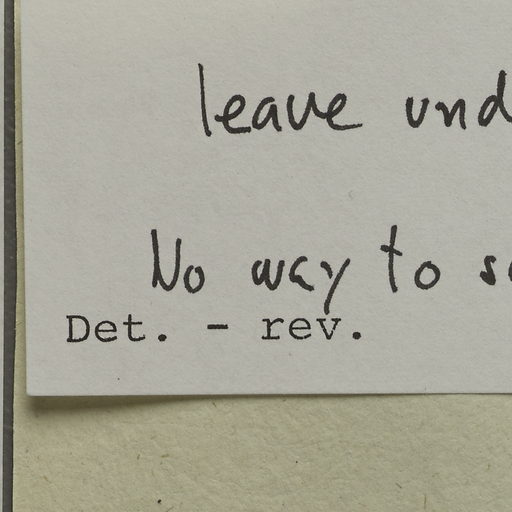 leave und
No way to s
Det. - rev.